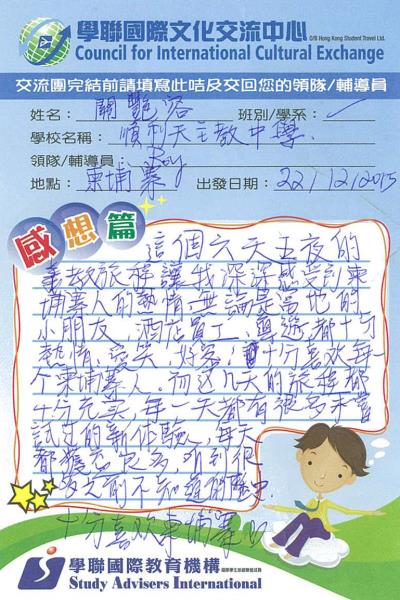 學聯國際文化交流中心
O/B Hong Kong Student Travel Ltd.
Council for International Cultural Exchange
交流團完結前請填寫此咭及交回您的領隊/輔導員
姓名：關艷 班別/學系：
學校名稱：順利天主教中學.
領隊/輔導員：Roy
地點：柬埔寨 出發日期：22/12/2015
感想篇
這個六天五夜的
義教旅程讓我深深感受到柬
埔寨人的熱情,無論是當地的
小朋友,酒店員工、導遊都十分
熱情、愛笑、好客!十分喜歡每一
个柬埔寨人。而这几天的旅程都
十分完美,每一天都有很多未嘗
試过的新体驗,每天
都獲 良多,听到很
多之前不知道的歷史.
十分喜欢柬埔寨
學聯國際教育機構
Study Advisers International